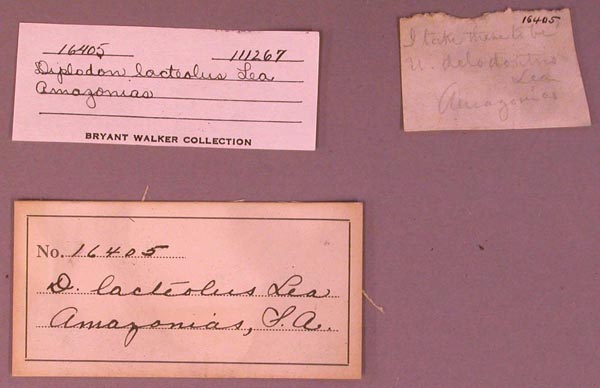 16405 111267
Diplodon lacteolus Lea
Amazonias
BRYANT WALKER COLLECTION
16405
I take these to be
U. delodontus
Lea
Amazonias
No. 16405
D. lacteolus Lea
Amazonias, S.A.